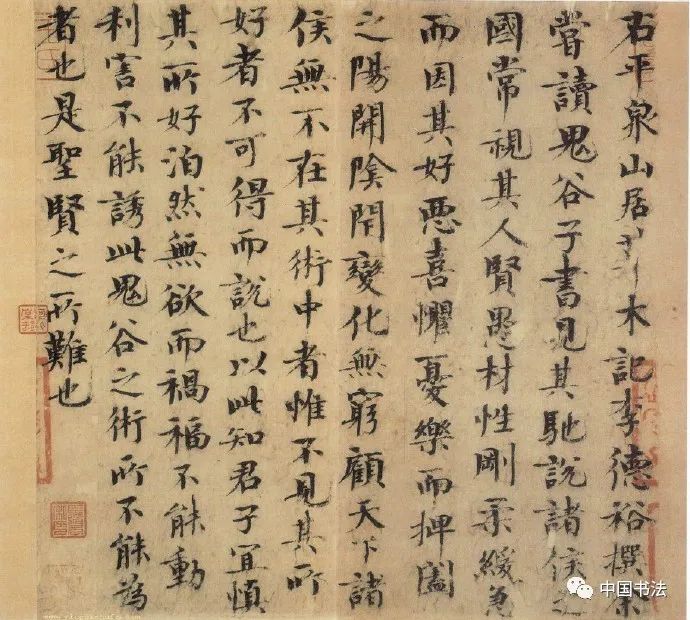 右平泉山居草木記李德裕撰余
嘗讀鬼谷子書見其馳說諸侯之
國常視其人賢愚材性剛柔緩急
而因其好惡喜懼憂樂而捭闔
之陽開陰閉變化無窮顧天下諸
侯無不在其術中者惟不見其所
好者不可得而說也以此知君子宜慎
其所好泊然無欲而禍福不能動
利害不能誘此鬼谷之術所不能為
者也是聖賢之所難也
中国书法